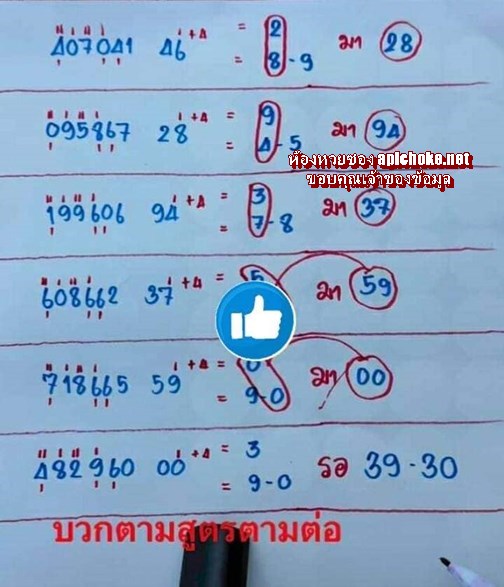 407041 46 +4 = 2
= 8-9 มา 28
095867 28 +4 = 9
= 4-5 มา 94
ห้องหวยซอง apichoke.net
ขอบคุณเจ้าของข้อมูล
199606 94 +4 = 3
= 7-8 มา 37
608662 37 +4 = 5
มา 59
718665 59 +4 = 0
= 9-0 มา 00
482960 00 +4 = 3
= 9-0 รอ 39-30
บวกตามสูตรตามต่อ